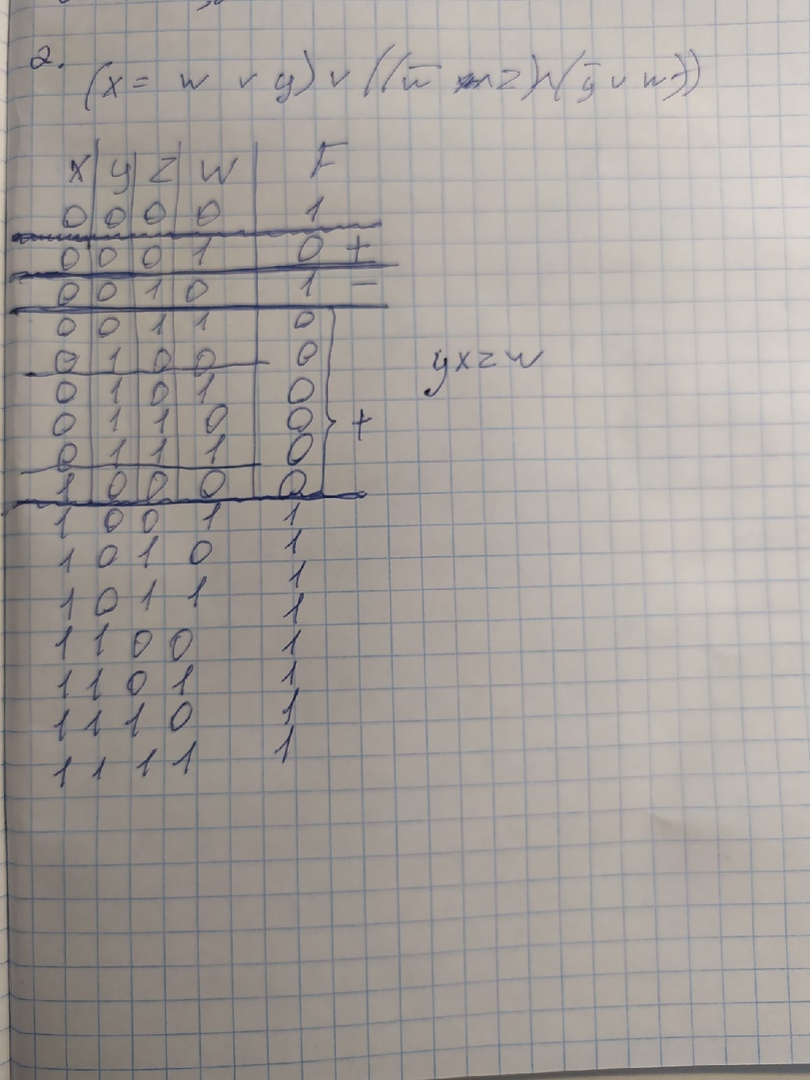 2.
(x = w v y) v ((w̅ ∧ z) ∧ (y̅ v w))
x y z w F
0 0 0 0 1
0 0 0 1 0 +
0 0 1 0 1 −
0 0 1 1 0
0 1 0 0 0
yxzw
0 1 0 1 0
0 1 1 0 0 +
0 1 1 1 0
1 0 0 0 0
1 0 0 1 1
1 0 1 0 1
1 0 1 1 1
1
1 1 0 0 1
1 1 0 1 1
1 1 1 0 1
1 1 1 1 1